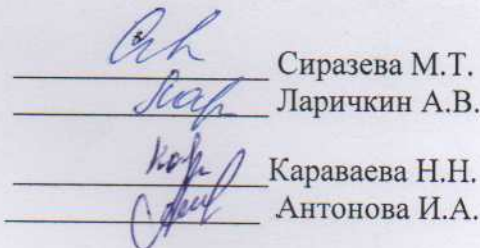 Сиразева М.Т.
Ларичкин А.В.
Караваева Н.Н.
Антонова И.А.